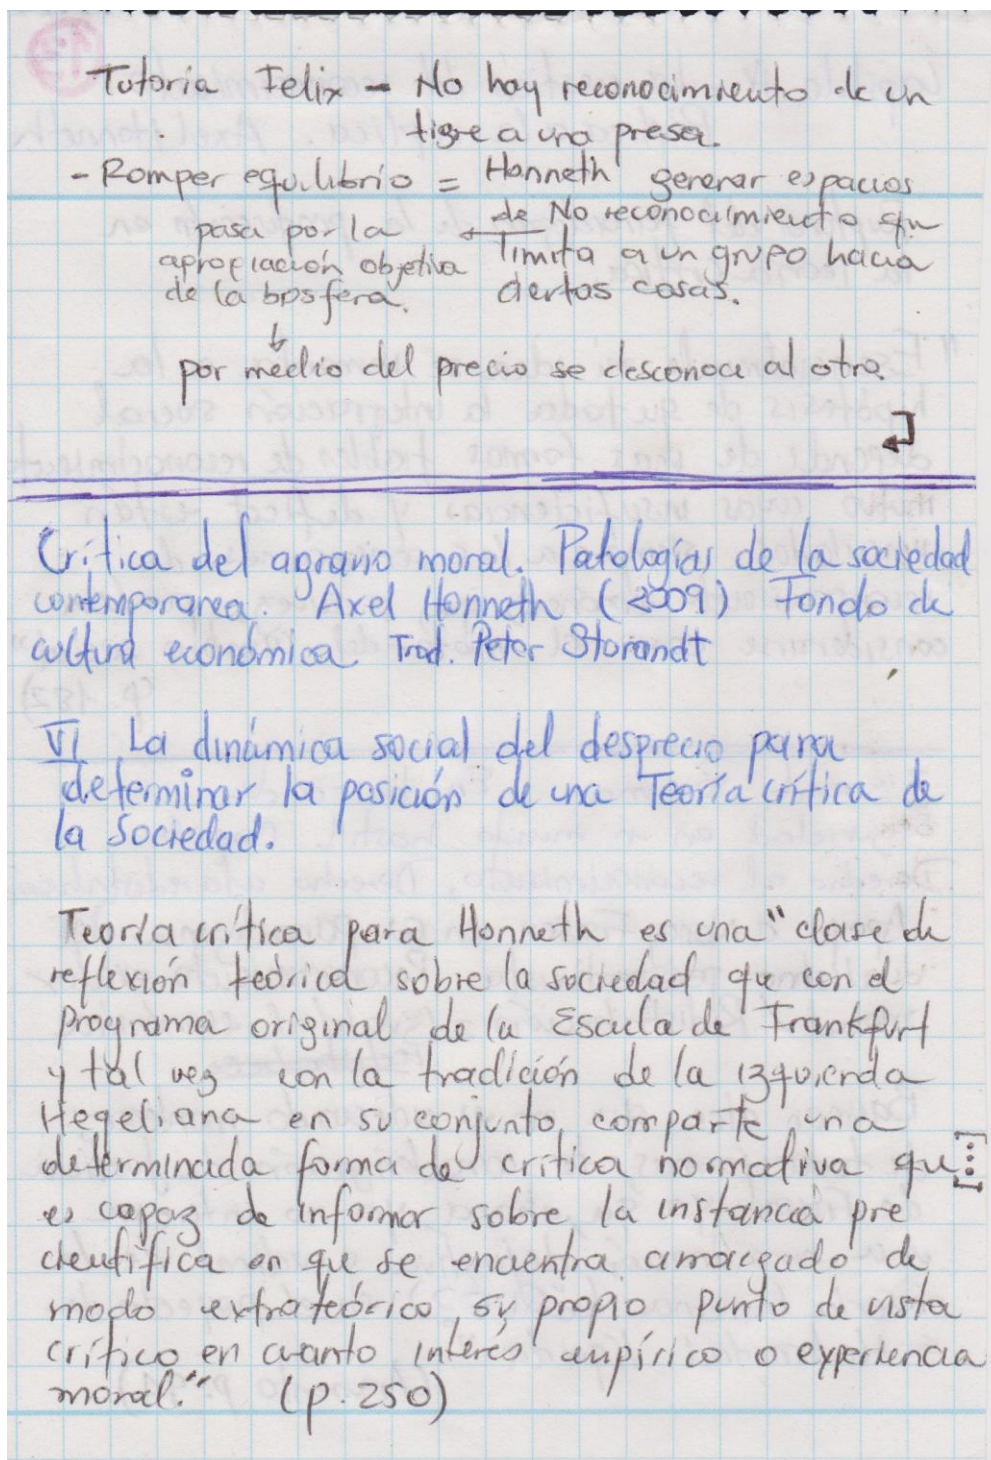 Tutoria Felix - No hay reconocimiento de un
tigre a una presa.
- Romper equilibrio = Honneth generar espacios
de No reconocimiento que
limita a un grupo hacia
ciertas cosas.
pasa por la
apropiación objetiva
de la biosfera.
por medio del precio se desconoce al otro.
Crítica del agravio moral. Patologías de la sociedad
contemporanea. Axel Honneth (2009) Fondo de
cultura económica Trad. Peter Storandt
VI La dinámica social del desprecio para
determinar la posición de una Teoría crítica de
la Sociedad.
Teoría crítica para Honneth es una "clase de
reflexión teórica sobre la sociedad que con el
programa original de la Escuela de Frankfurt
y tal vez con la tradición de la izquierda
Hegeliana en su conjunto, comparte una
determinada forma de crítica normativa que [...]
es capaz de informar sobre la instancia pre
científica en que se encuentra arraigado de
modo extrateórico su propio punto de vista
crítico en cuanto interés empírico o experiencia
moral." (p. 250)